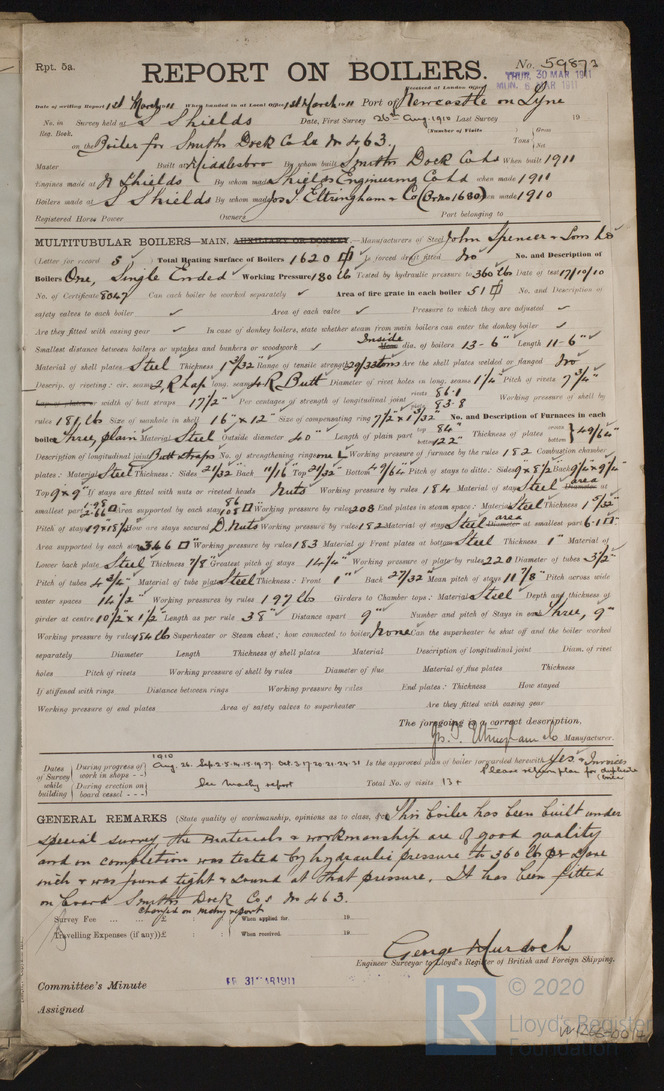 Rpt. 5a.
No. 59872
REPORT ON BOILERS.
Received at London Office
THUR. 30 MAR 1911
MON. 6 MAR 1911
Date of writing Report 1st March 11 When handed in at Local Office 1st March 1911 Port of Newcastle on Tyne
No. in Survey held at S Shields Date, First Survey 26th Aug. 1910 Last Survey 19
Reg. Book. (Number of Visits
on the Boiler for Smiths Dock Co Ld No 463. Tons { Gross
Net
Master Built at Middlesbro By whom built Smiths Dock Co Ld When built 1911
Engines made at N Shields By whom made Shields Engineering Co Ld when made 1911
Boilers made at S Shields By whom made Jos T. Eltringham & Co (Bo No 1680) when made 1910
Registered Horse Power Owners Port belonging to
MULTITUBULAR BOILERS—MAIN, AUXILIARY OR DONKEY.—Manufacturers of Steel John Spencer & Sons Ld
(Letter for record S) Total Heating Surface of Boilers 1620 Is forced draft fitted No No. and Description of
Boilers One, Single Ended Working Pressure 180 lb Tested by hydraulic pressure to 360 lbs Date of test 17/10/10
No. of Certificate 8047 Can each boiler be worked separately Area of fire grate in each boiler 51 No. and Description of
safety valves to each boiler Area of each valve Pressure to which they are adjusted
Are they fitted with easing gear In case of donkey boilers, state whether steam from main boilers can enter the donkey boiler
Smallest distance between boilers or uptakes and bunkers or woodwork Inside dia. of boilers 13-6" Length 11-6"
Material of shell plates Steel Thickness 1 3/32" Range of tensile strength 29/33 tons Are the shell plates welded or flanged No
Descrip. of riveting: cir. seams 2 R Lap long. seams 4 R Butt Diameter of rivet holes in long. seams 1 1/4" Pitch of rivets 7 3/4"
Lap of plates or width of butt straps 17 1/2" Per centages of strength of longitudinal joint rivets 86.1 plate 83.8 Working pressure of shell by
rules 181 lb Size of manhole in shell 16" x 12" Size of compensating ring 7 1/2" x 1 3/32" No. and Description of Furnaces in each
boiler Three, plain Material Steel Outside diameter 40" Length of plain part top 84" bottom 122" Thickness of plates crown bottom } 49/64"
Description of longitudinal joint Butt straps No. of strengthening rings one Working pressure of furnace by the rules 182 Combustion chamber
plates: Material Steel Thickness: Sides 21/32" Back 11/16" Top 21/32" Bottom 49/64" Pitch of stays to ditto: Sides 9 x 8 1/2 Back 9 1/4 x 9 1/2"
Top 9 x 9" If stays are fitted with nuts or riveted heads Nuts Working pressure by rules 184 Material of stays Steel area Diameter at
smallest part 1.98 2.66 Area supported by each stay 86 108 Working pressure by rules 208 End plates in steam space: Material Steel Thickness 1 5/32"
Pitch of stays 19 x 18 1/2 How are stays secured D. Nuts Working pressure by rules 182 Material of stays Steel area Diameter at smallest part 6.1
Area supported by each stay 346 Working pressure by rules 183 Material of Front plates at bottom Steel Thickness 1" Material of
Lower back plate Steel Thickness 7/8" Greatest pitch of stays 14 1/4" Working pressure of plate by rules 220 Diameter of tubes 3 1/2"
Pitch of tubes 4 3/4" Material of tube plates Steel Thickness: Front 1" Back 27/32" Mean pitch of stays 11 7/8" Pitch across wide
water spaces 14 1/2" Working pressures by rules 197 lbs Girders to Chamber tops: Material Steel Depth and thickness of
girder at centre 10 1/2" x 1 1/2" Length as per rule 38" Distance apart 9" Number and pitch of Stays in each Three, 9"
Working pressure by rules 184 lb Superheater or Steam chest; how connected to boiler None Can the superheater be shut off and the boiler worked
separately Diameter Length Thickness of shell plates Material Description of longitudinal joint Diam. of rivet
holes Pitch of rivets Working pressure of shell by rules Diameter of flue Material of flue plates Thickness
If stiffened with rings Distance between rings Working pressure by rules End plates: Thickness How stayed
Working pressure of end plates Area of safety valves to superheater Are they fitted with easing gear
The foregoing is a correct description.
Jos. T. Eltringham & Co Manufacturer.
Dates of Survey while building { During progress of work in shops - - 1910 Aug. 26. Sep. 2.5.14.15.19.27. Oct. 2.17.20.21.24.31 Is the approved plan of boiler forwarded herewith Yes & Invoices
Please return plan for duplicate
During erection on board vessel - - - See Machy report Total No. of visits 13+
GENERAL REMARKS (State quality of workmanship, opinions as to class, &c. This boiler has been built under
special survey, the materials & workmanship are of good quality
and on completion was tested by hydraulic pressure to 360 lbs pr square
inch & was found tight & sound at that pressure. It has been fitted
on board Smiths Dock Cos No 463.
Survey Fee ... ... £ charged on machy report When applied for, 19
Travelling Expenses (if any) £ : : When received, 19
George Murdoch
Engineer Surveyor to Lloyd's Register of British and Foreign Shipping.
Committee's Minute FRI. 31 MAR 1911
Assigned
LR
© 2020
Lloyd's Register
Foundation